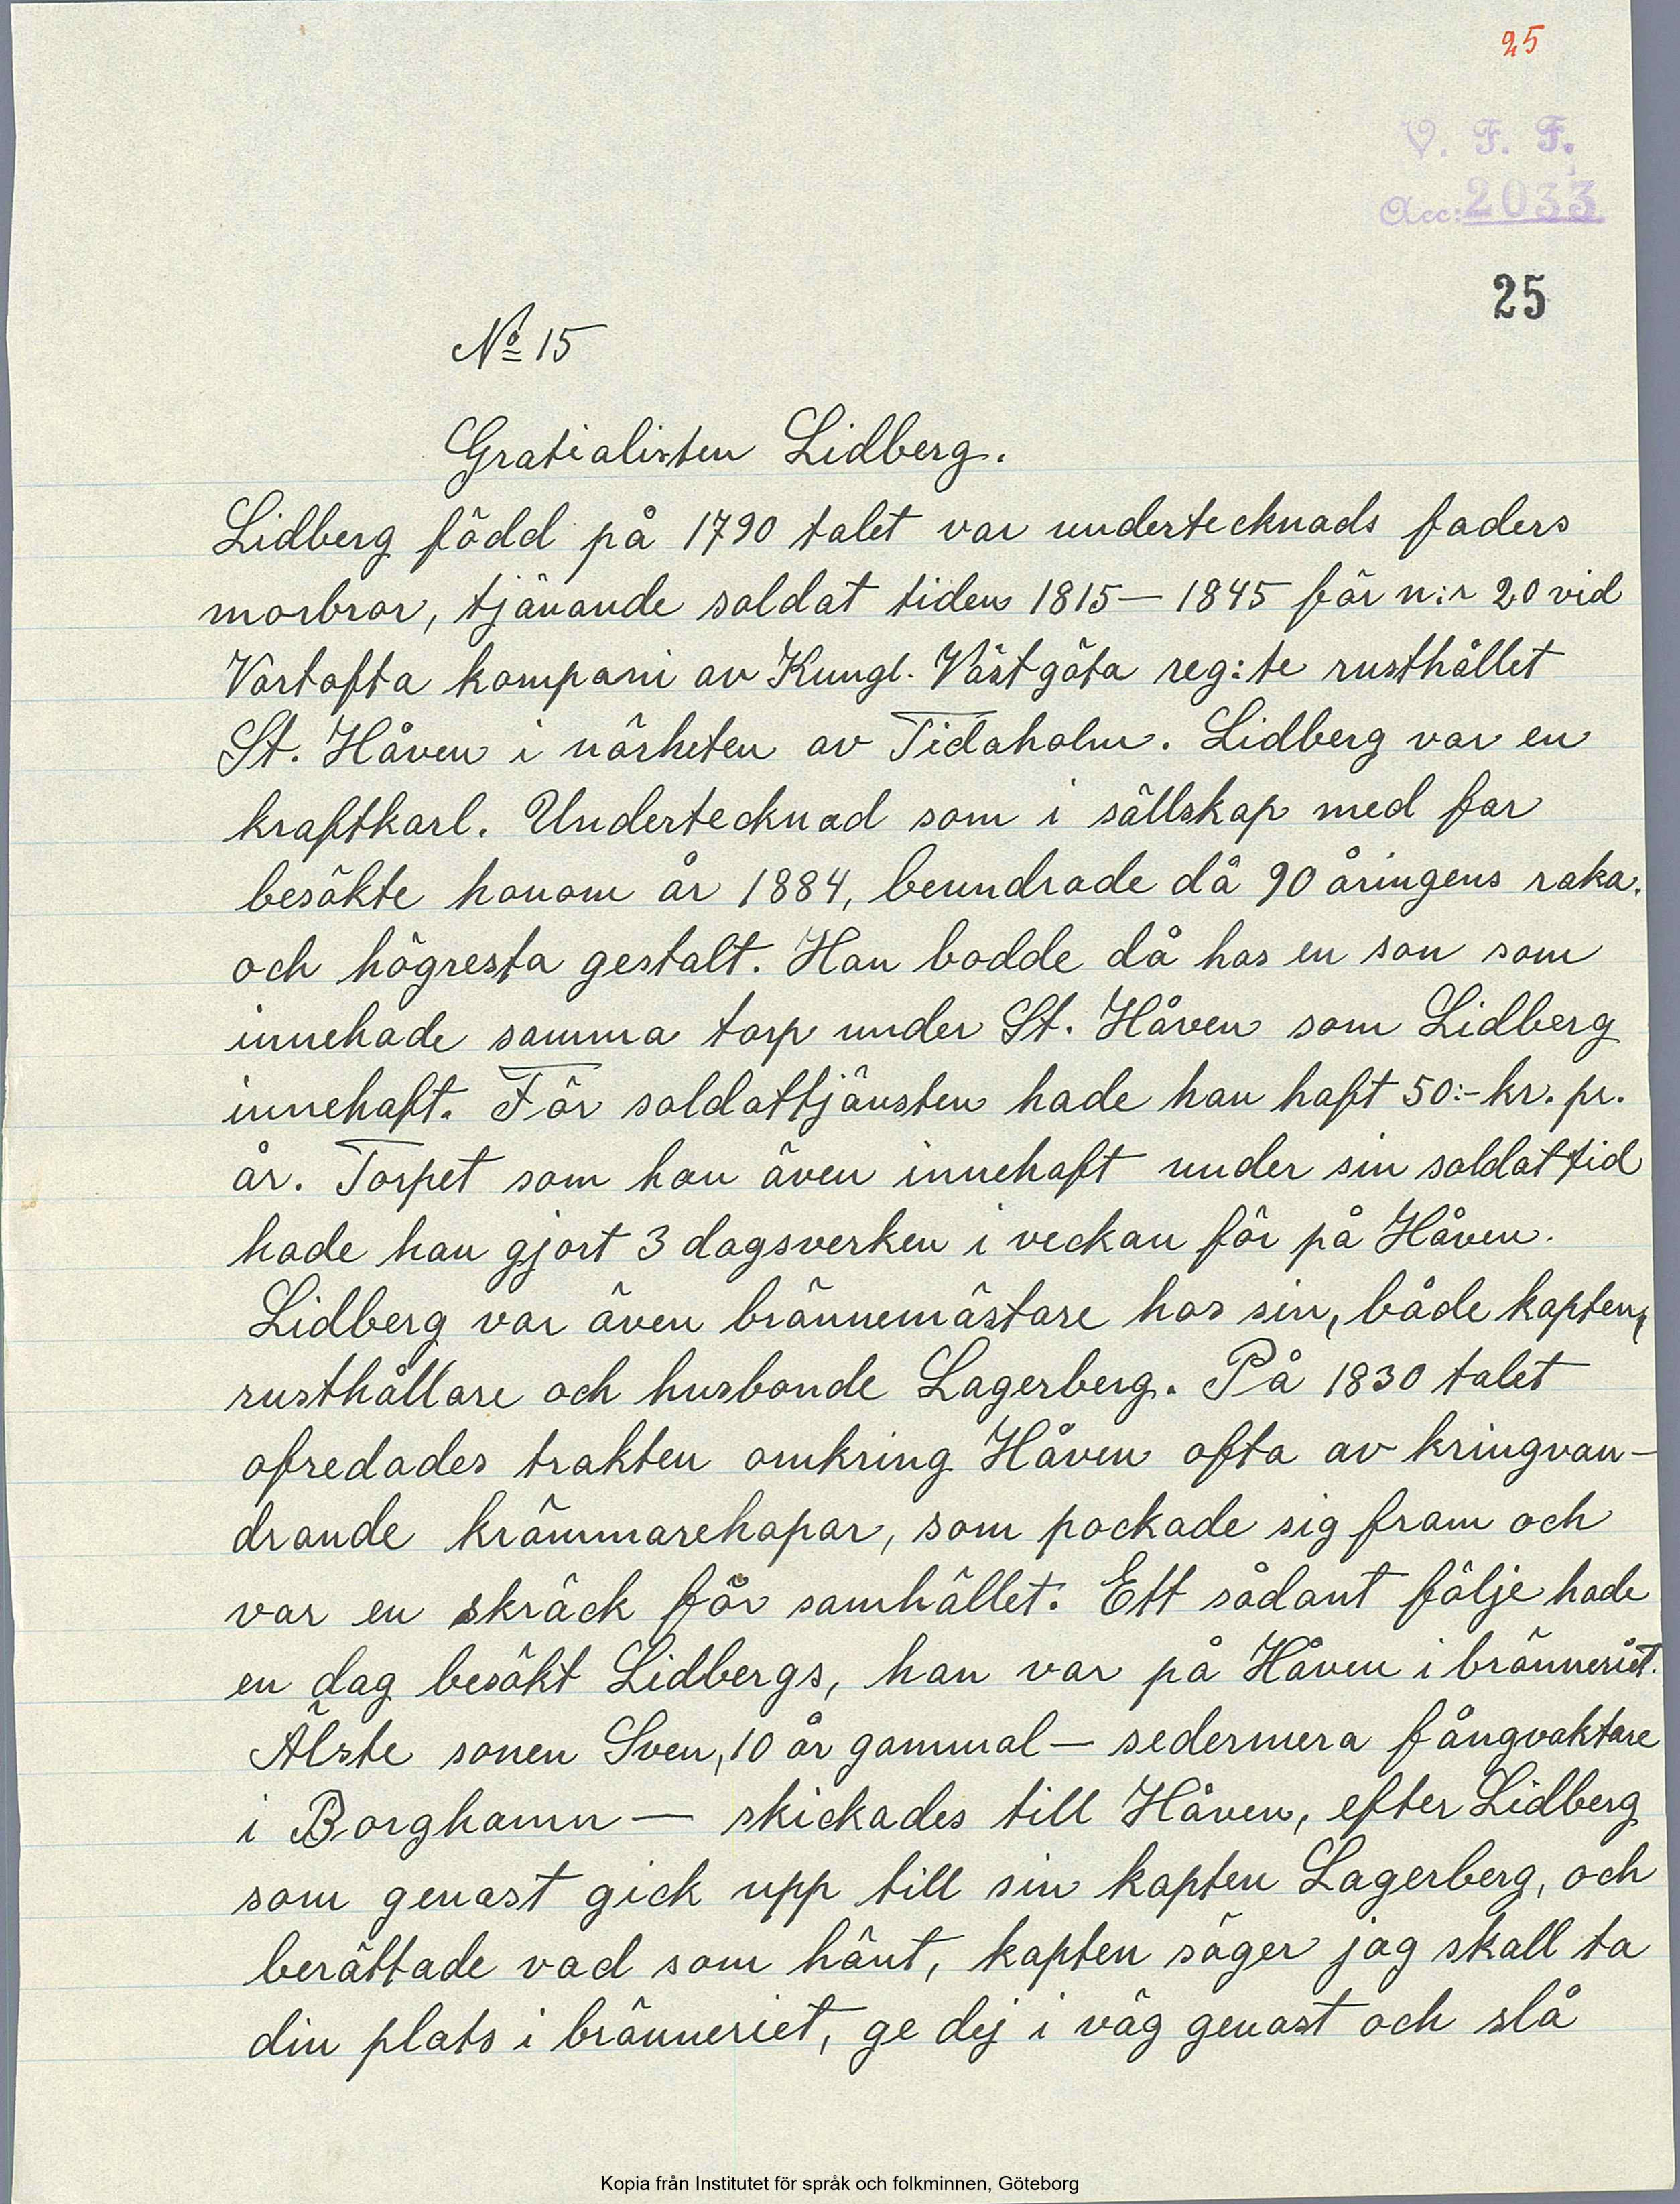 25
V. F. F.
Acc: 2033
25
No 15
Gratialisten Lidberg.
Lidberg född på 1790 talet var undertecknads faders
morbror, tjänande soldat tiden 1815 – 1845 för n:r 20 vid
Vartofta kompani av Kungl. Västgöta reg:te rusthållet
St. Håven i närheten av Tidaholm. Lidberg var en
kraftkarl. Undertecknad som i sällskap med far
besökte honom år 1884, beundrade då 90 åringens raka
och högresta gestalt. Han bodde då hos en son som
innehade samma torp under St. Håven som Lidberg
innehaft. För soldattjänsten hade han haft 50:- kr. pr.
år. Torpet som han även innehaft under sin soldattid
hade han gjort 3 dagsverken i veckan för på Håven.
Lidberg var även brännemästare hos sin, både kapten,
rusthållare och husbonde Lagerberg. På 1830 talet
ofredades trakten omkring Håven ofta av kringvan-
drande krämmarehopar, som pockade sig fram och
var en skräck för samhället. Ett sådant följe hade
en dag besökt Lidbergs, han var på Håven i bränneriet.
Älste sonen Sven, 10 år gammal – sedermera fångvaktare
i Borghamn – skickades till Håven, efter Lidberg
som genast gick upp till sin kapten Lagerberg, och
berättade vad som hänt, kapten säger jag skall ta
din plats i bränneriet, ge dej i väg genast och slå
Kopia från Institutet för språk och folkminnen, Göteborg